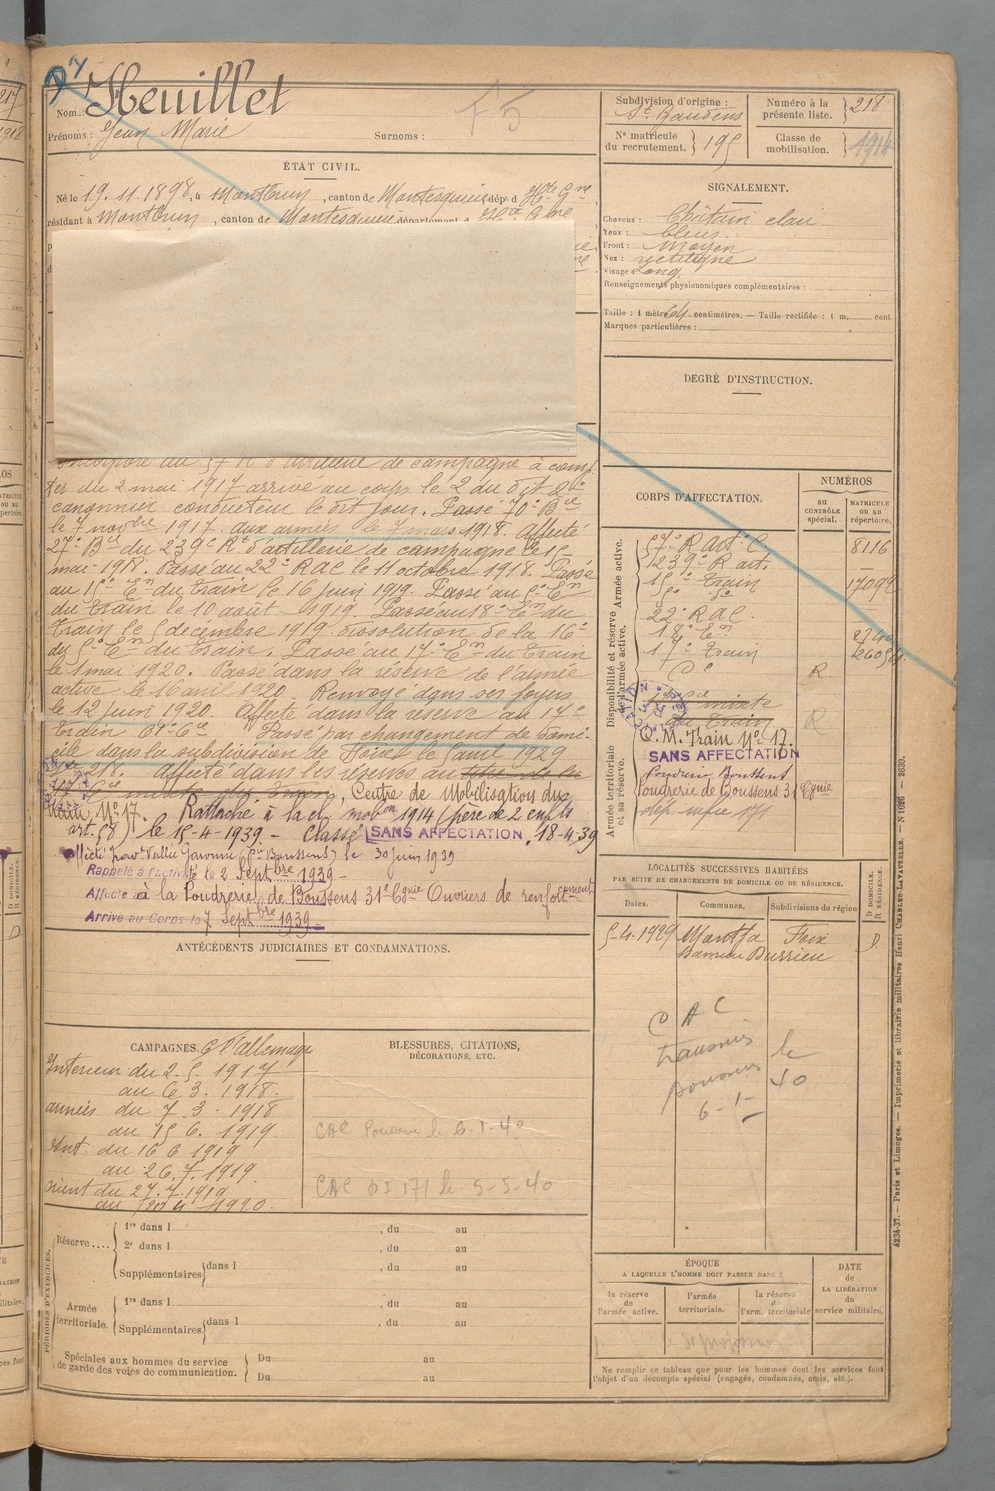 Nom : Heuillet
Prénoms : Jean Marie Surnoms :
F5
Subdivision d'origine : St Gaudens
Numéro à la présente liste. } 218
Nº matricule du recrutement. } 195
Classe de mobilisation. } 1914
ÉTAT CIVIL.
Né le 19.11.1898, à Montbrun, canton de Montesquieu dépt d Hte Gne
résidant à Montbrun, canton de Montesquieu département d Hte Gne
SIGNALEMENT.
Cheveux : Châtain clair
Yeux : bleus
Front : moyen
Nez : rectiligne
Visage : Long
Renseignements physionomiques complémentaires :
Taille : 1 mètre 64 centimètres. — Taille rectifiée : 1 m. cent
Marques particulières :
DEGRÉ D'INSTRUCTION.
au 57e R d'artillerie de campagne à comp-
ter du 2 mai 1917 arrivé au corps le 2 du dit 2e
canonnier conducteur le dit jour. Passé 70e Bie
le 7 novbre 1917. aux armées le 7 mars 1918. Affecté
27e Bie du 239e Rt d'artillerie de campagne le 15
mai 1918. Passé au 22e RAC le 11 octobre 1918. Passé
au 15e En du train le 16 juin 1919. Passé au 5e En
du train le 10 août 1919. Passé au 18e En du
train le 5 décembre 1919 dissolution de la 16e
du 5e En du train. Passé au 17e En du train
le 1 mai 1920. Passé dans la réserve de l'armée
active le 16 avril 1920. Renvoyé dans ses foyers
le 12 juin 1920. Affecté dans la réserve au 17e
train Passé par changement de domi-
cile dans la subdivision de Foix le 5 avril 1929
Affecté dans les réserves au
Centre de Mobilisation du
train Nº 17. Rattaché à la cl. mobon 1914 (père de 2 enfts
art. 58) le 15-4-1939 - Classé SANS AFFECTATION 18-4-39
affecté Garonne (Boussens) le 30 juin 1939
Rappelé à l'activité le 2 Septbre 1939 -
Affecté à la Poudrerie de Boussens 31e Cgnie Ouvriers de renforcement
Arrivé au Corps le 7 Septbre 1939 -
CORPS D'AFFECTATION.
NUMÉROS
AU CONTRÔLE SPÉCIAL.
MATRICULE OU AU RÉPERTOIRE.
Disponibilité et réserve de l'armée active.
Armée active.
Armée territoriale et sa réserve.
57e R art. C 8116
239e R art.
15e train 17099
5e de
22e RAC.
18e En
17e train
de R
mixte
du train
R
C.M. Train Nº 17.
SANS AFFECTATION
Poudrerie Boussens
Poudrerie de Boussens 31 Cgnie
LOCALITÉS SUCCESSIVES HABITÉES
PAR SUITE DE CHANGEMENTS DE DOMICILE OU DE RÉSIDENCE.
Dates. Communes. Subdivisions de région
D DOMICILE. R RÉSIDENCE.
5-4-1929 Foix D
CAC
transmis le
6-1-40
ANTÉCÉDENTS JUDICIAIRES ET CONDAMNATIONS.
CAMPAGNES. Ct l'allemagne
Intérieur du 2.5.1917
au 6.3.1918.
armées du 7-3-1918
au 15 6.1919.
Int. du 16 6 1919
au 26.7.1919.
Orient du 27.7.1919
au 1920.
BLESSURES, CITATIONS,
DÉCORATIONS, ETC.
CAC 6-1-40
CAC DI 171 le 5-5-40
PÉRIODES D'EXERCICES.
Réserve.... { 1re dans l , du au
2e dans l , du au
Supplémentaires { dans l , du au
Armée territoriale. { 1re dans l , du au
Supplémentaires { dans l , du au
Spéciales aux hommes du service de garde des voies de communication. { Du au
Du au
ÉPOQUE
A LAQUELLE L'HOMME DOIT PASSER DANS :
la réserve de l'armée active.
l'armée territoriale.
la réserve de l'arm. territoriale
DATE de LA LIBÉRATION du service militaire.
Ne remplir ce tableau que pour les hommes dont les services font
l'objet d'un décompte spécial (engagés, condamnés, omis, etc.).
4234-37. — Paris et Limoges. — Imprimerie et librairie militaires Henri CHARLES-LAVAUZELLE. — N 1026 2630.